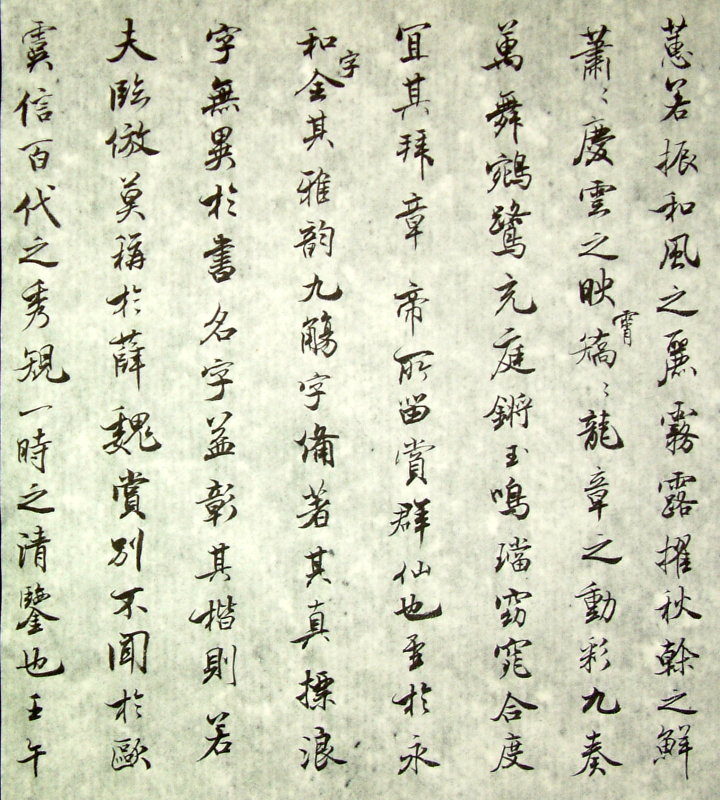 蕙若振和風之麗霧露擢秋幹之鮮
蕭〻慶雲之映霄矯〻龍章之動彩九奏
萬舞鵷鷺充庭鏘玉鳴璫窈窕合度
宜其拜章帝所留賞群仙也至於永
和字全其雅韵九觴字備著其真摽浪
字無異於書名字益彰其楷則若
夫臨倣莫稱於薛魏賞别不聞於歐
虞信百代之秀規一時之清鑒也壬午